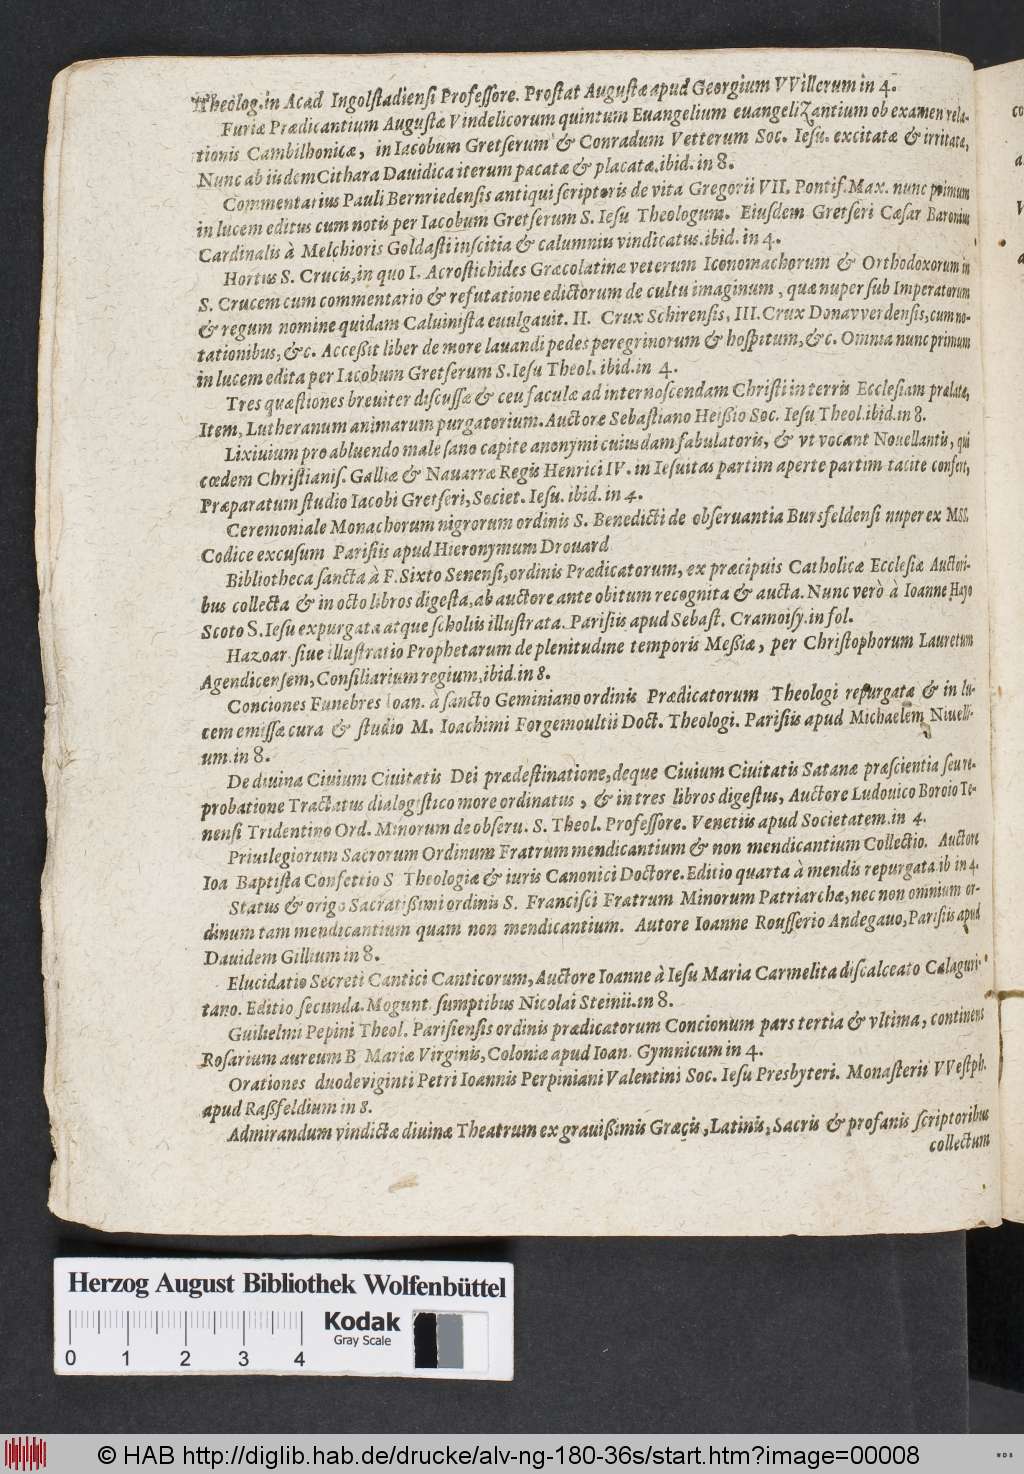 Theolog. in Acad Ingolſtadienſi Profeſſore. Proſtat Auguſtæ apud Georgium VVillerum in 4.
Furiæ Prædicantium Auguſtæ Vindelicorum quintum Euangelium euangelizantium ob examen rela-
tionis Cambilhonicæ, in Iacobum Gretſerum & Conradum Vetterum Soc. Ieſu. excitatæ & irritatæ,
Nunc ab iiſdem Cithara Dauidica iterum pacatæ & placatæ. ibid. in 8.
Commentarius Pauli Bernriedenſis antiqui ſcriptoris de vita Gregorii VII. Pontif. Max. nunc primum
in lucem editus cum notis per Iacobum Gretſerum S. Ieſu Theologum. Eiuſdem Gretſeri Cæſar Baronius
Cardinalis à Melchioris Goldaſti inſcitia & calumniis vindicatus. ibid. in 4.
Hortus S. Crucis, in quo I. Acroſtichides Græcolatinæ veterum Iconomachorum & Orthodoxorum in
S. Crucem cum commentario & refutatione edictorum de cultu imaginum, quæ nuper ſub Imperatorum
& regum nomine quidam Caluiniſta euulgauit. II. Crux Schirenſis, III. Crux Donavverdenſis, cum no-
tationibus, &c. Acceßit liber de more lauandi pedes peregrinorum & hoſpitum, &c. Omnia nunc primum
in lucem edita per Iacobum Gretſerum S. Ieſu Theol. ibid. in 4.
Tres quæſtiones breuiter diſcuſſæ & ceu faculæ ad internoſcendam Chriſti in terris Eccleſiam prælatæ,
Item, Lutheranum animarum purgatorium. Auctore Sebaſtiano Heißio Soc. Ieſu Theol. ibid. in 8.
Lixiuium pro abluendo male ſano capite anonymi cuiuſdam fabulatoris, & vt vocant Nouellantis, qui
cœdem Chriſtianiſ. Galliæ & Nauarræ Regis Henrici IV. in Ieſuitas partim aperte partim tacite confert,
Præparatum ſtudio Iacobi Gretſeri, Societ. Ieſu. ibid. in 4.
Ceremoniale Monachorum nigrorum ordinis S. Benedicti de obſeruantia Bursfeldenſi nuper ex MSS.
Codice excuſum Pariſiis apud Hieronymum Drouard
Bibliotheca ſancta à F. Sixto Senenſi, ordinis Prædicatorum, ex præcipuis Catholicæ Eccleſiæ Auctori-
bus collecta & in octo libros digeſta, ab auctore ante obitum recognita & aucta. Nunc verò à Ioanne Hayo
Scoto S. Ieſu expurgata atque ſcholiis illuſtrata. Pariſiis apud Sebaſt. Cramoiſy. in fol.
Hazoar ſiue illuſtratio Prophetarum de plenitudine temporis Meßiæ, per Chriſtophorum Lauretum
Agendicenſem, Conſiliarium regium, ibid. in 8.
Conciones Funebres Ioan. à ſancto Geminiano ordinis Prædicatorum Theologi repurgatæ & in lu-
cem emiſſæ cura & ſtudio M. Ioachimi Forgemoultii Doct. Theologi. Pariſiis apud Michaelem Niuelli-
um. in 8.
De diuina Ciuium Ciuitatis Dei prædeſtinatione, deque Ciuium Ciuitatis Satanæ præſcientia ſeu re-
probatione Tractatus dialogiſtico more ordinatus, & in tres libros digeſtus, Auctore Ludouico Boroio Te-
nenſi Tridentino Ord. Minorum de obſeru. S. Theol. Profeſſore. Venetiis apud Societatem. in 4.
Priuilegiorum Sacrorum Ordinum Fratrum mendicantium & non mendicantium Collectio. Auctore
Ioa Baptiſta Confettio S Theologiæ & iuris Canonici Doctore. Editio quarta à mendis repurgata. ib in 4.
Status & origo Sacratißimi ordinis S. Franciſci Fratrum Minorum Patriarchæ, nec non omnium or-
dinum tam mendicantium quam non mendicantium. Autore Ioanne Rouſſerio Andegauo, Pariſiis apud
Dauidem Gillium in 8.
Elucidatio Secreti Cantici Canticorum, Auctore Ioanne à Ieſu Maria Carmelita diſcalceato Calaguri-
tano. Editio ſecunda. Mogunt. ſumptibus Nicolai Steinii. in 8.
Guilielmi Pepini Theol. Pariſienſis ordinis prædicatorum Concionum pars tertia & vltima, continens
Roſarium aureum B Mariæ Virginis, Coloniæ apud Ioan. Gymnicum in 4.
Orationes duodeviginti Petri Ioannis Perpiniani Valentini Soc. Ieſu Presbyteri. Monaſterii VVeſtph.
apud Raßfeldium in 8.
Admirandum vindictæ diuinæ Theatrum ex grauißimis Græcis, Latinis, Sacris & profanis ſcriptoribus
collectum
Herzog August Bibliothek Wolfenbüttel
Kodak
Gray Scale
0 1 2 3 4
© HAB http://diglib.hab.de/drucke/alv-ng-180-36s/start.htm?image=00008